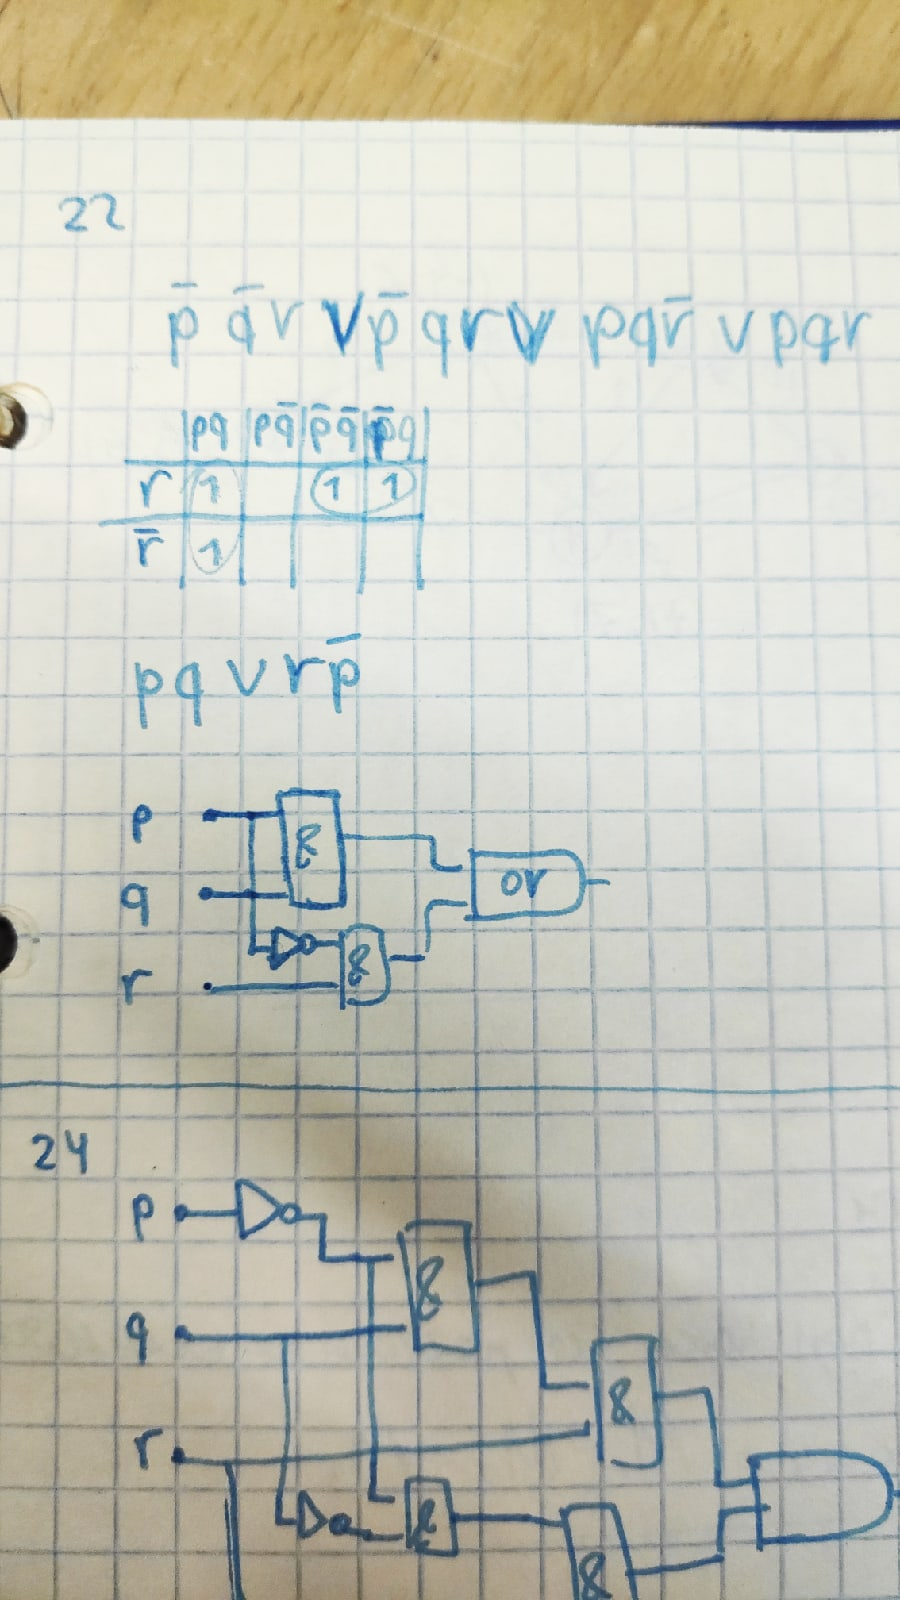 22
p̄ q̄ r ∨ p̄ q r ∨ p q r̄ ∨ p q r
pq pq̄ p̄q̄ p̄q
r 1 1 1
r̄ 1
pq ∨ rp̄
p &
q or
r &
24
p &
q &
r & &